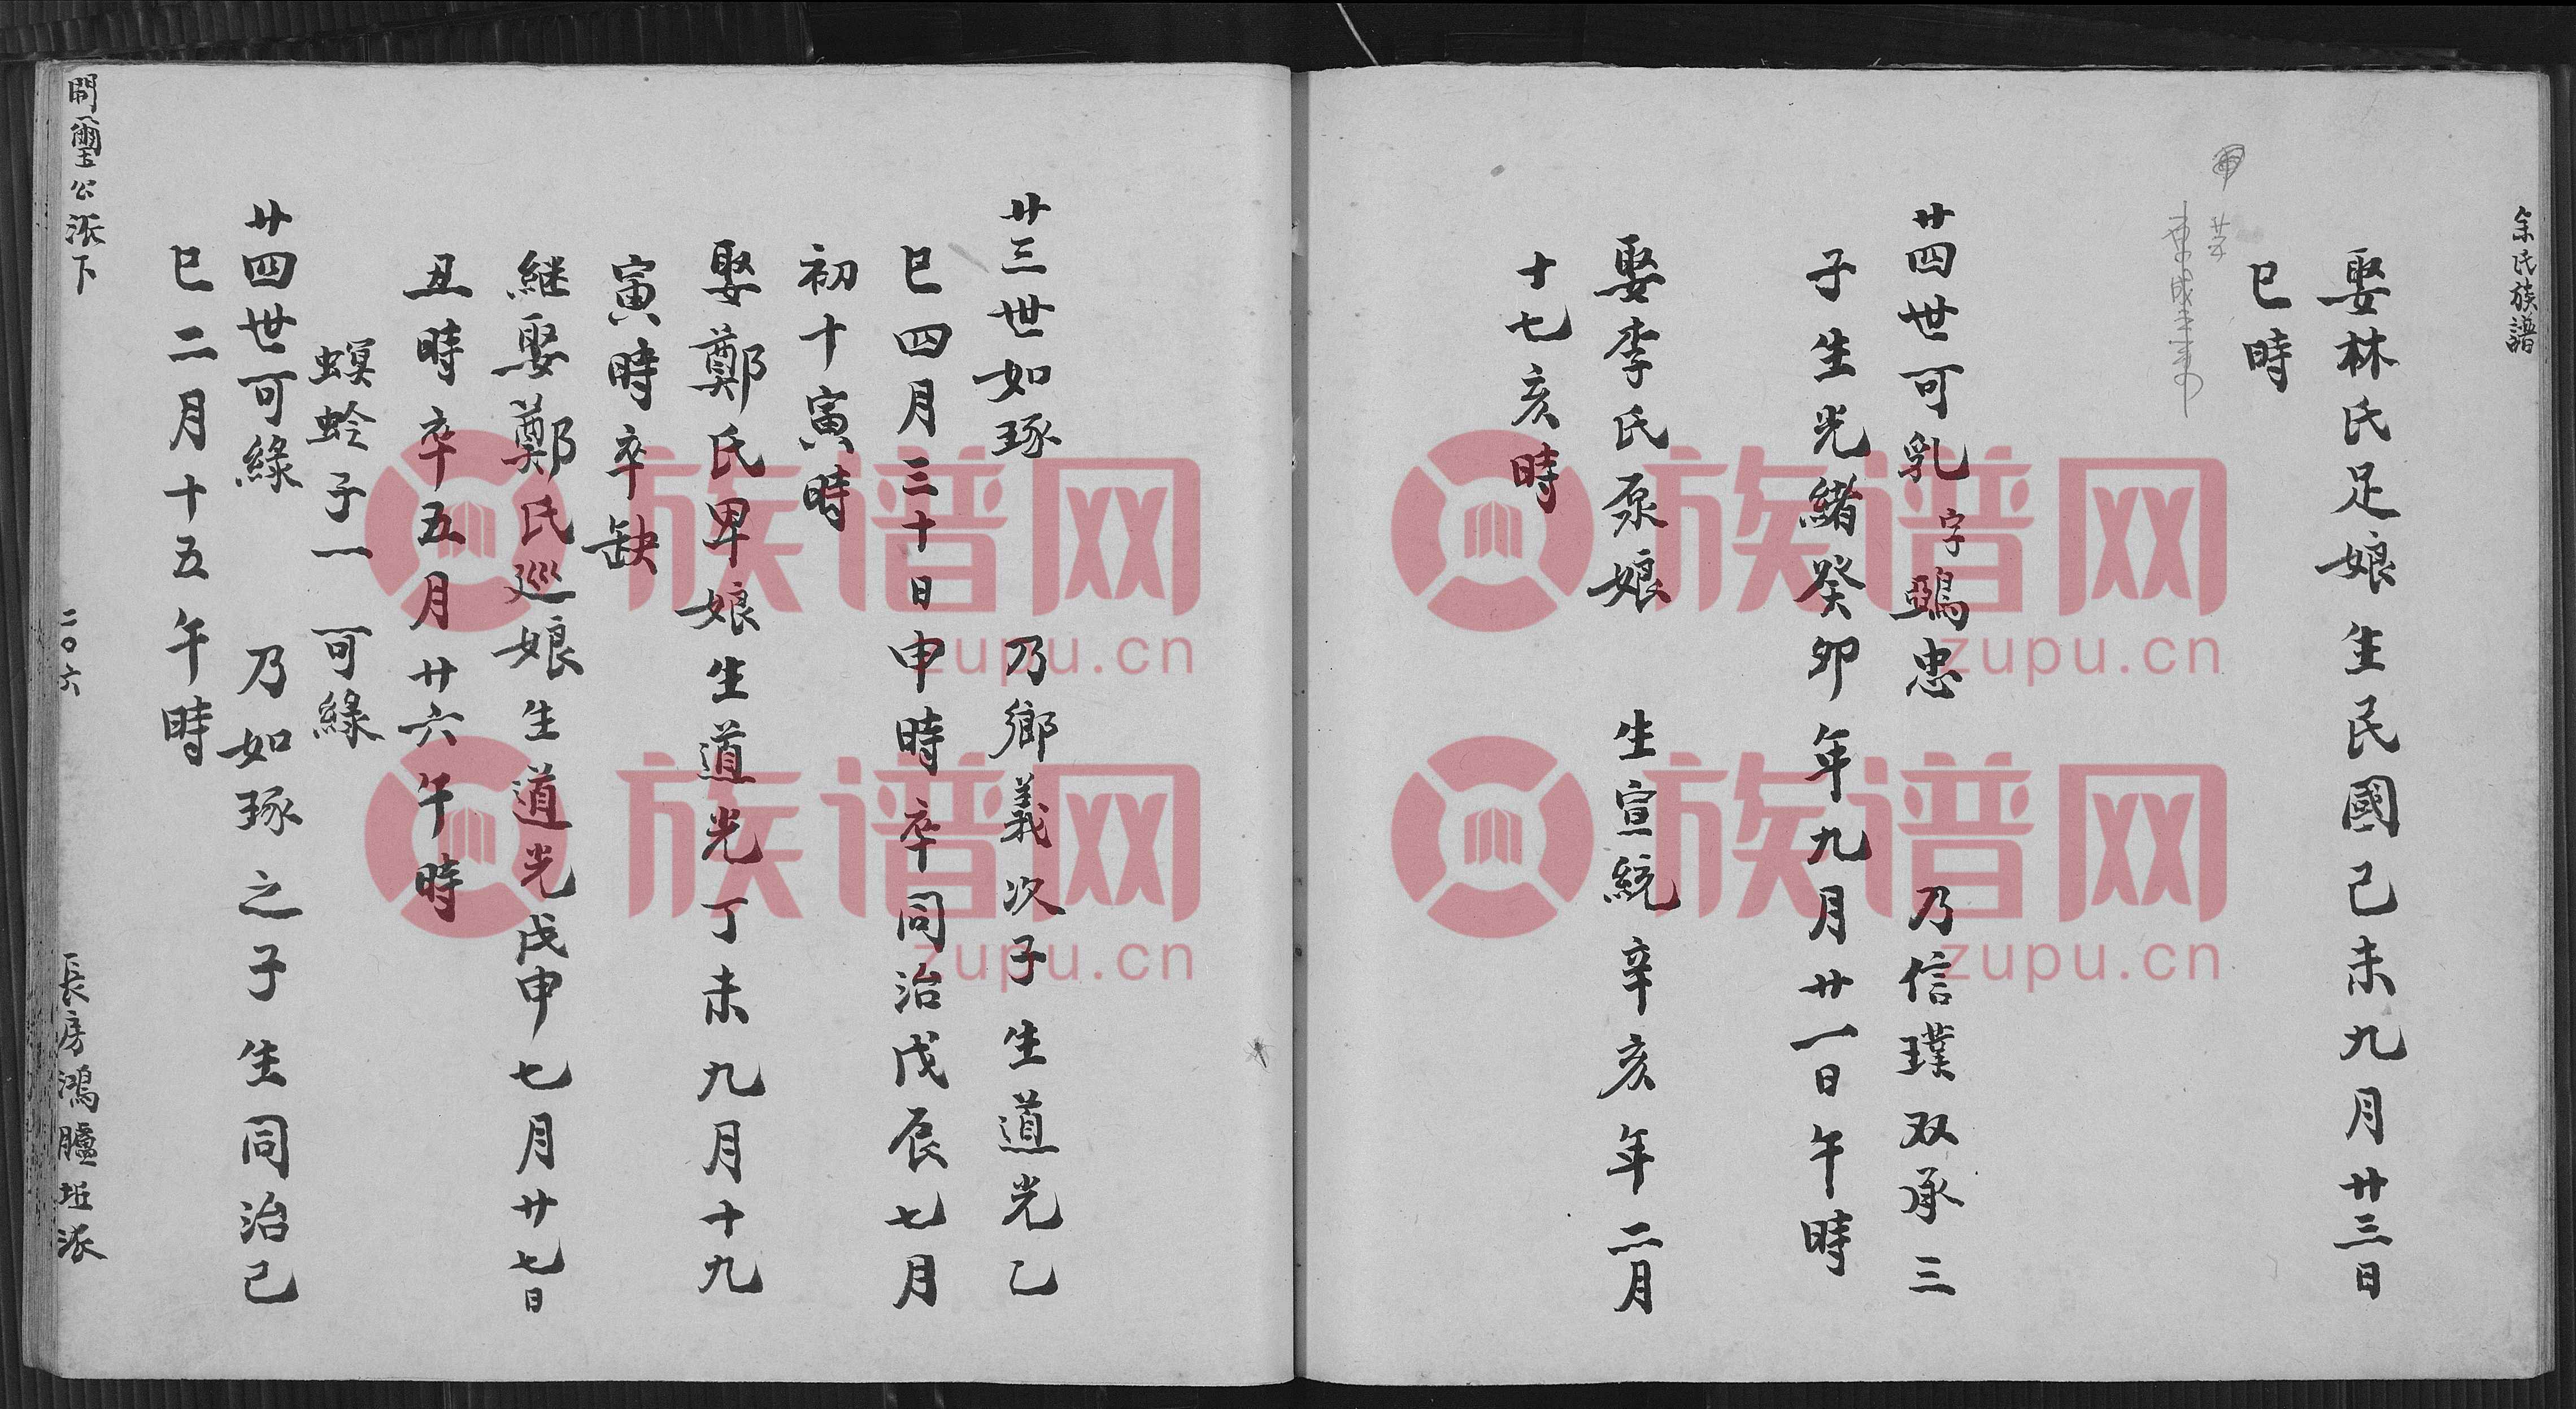 余氏族譜
娶林氏足娘生民國己未九月廿三日
巳時
廿四世可乳字鵶忠 乃信璞双承三
子生光緒癸卯年九月廿一日午時
娶李氏泵娘 生宣統辛亥年二月
十七亥時
廿三世如琢 乃鄉義次子生道光乙
巳四月三十日申時卒同治戊辰七月
初十寅時
娶鄭氏卑娘生道光丁未九月十九
寅時卒缺
継娶鄭氏巡娘生道光戊申七月廿七日
丑時卒五月廿六午時
螟蛉子一 可綠
廿四世可綠 乃如琢之子生同治己
巳二月十五午時
公派下
二〇六
長房鴻臚坵派
族谱网
zupu.cn
族谱网
zupu.cn
族谱网
zupu.cn
族谱网
zupu.cn